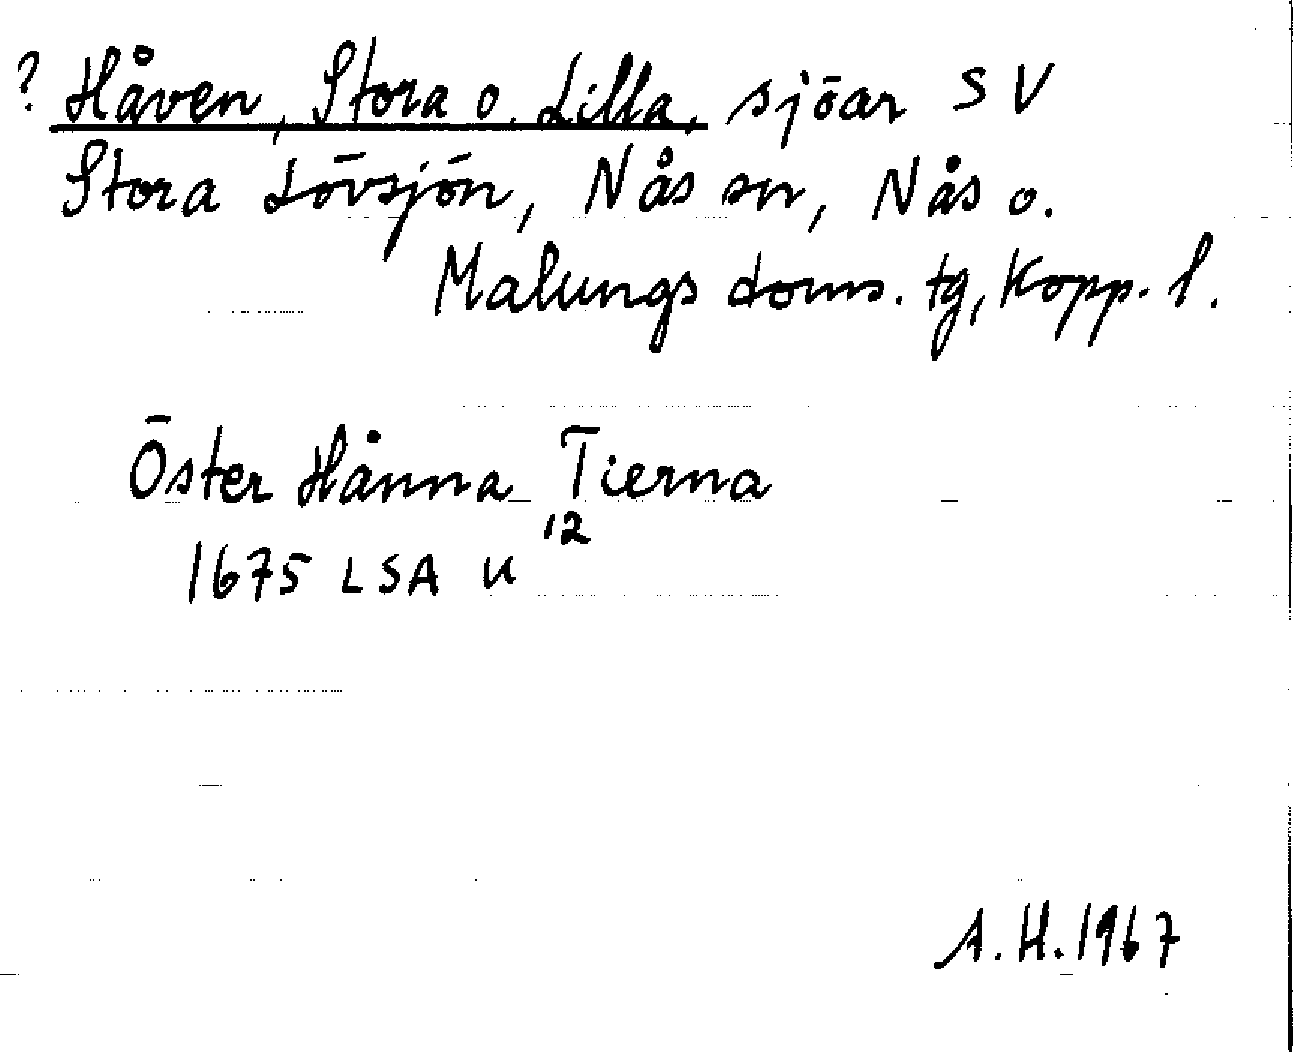 ? Håven, Stora o. Lilla, sjöar SV
Stora Lövsjön, Nås sn, Nås o.
Malungs doms. tg, Kopp. l.
Öster Hånna Tierna
1675 LSA U 12
A.H. 1967